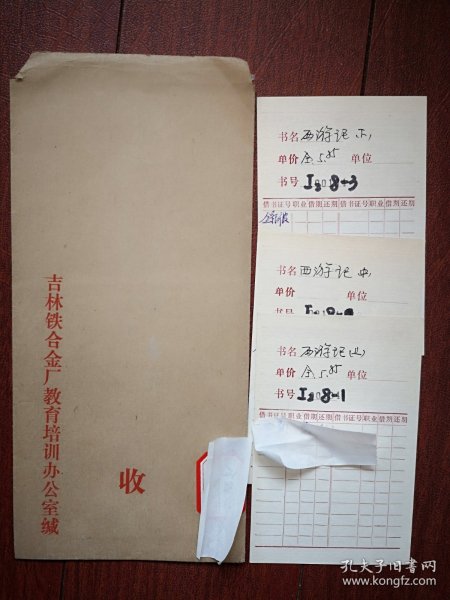 吉林铁合金厂教育培训办公室缄
收
书名 西游记 下
单价 全5.85 单位
书号 I308-3
借书证号 职业 借期 还期 借书证号 职业 借期 还期
书名 西游记 中
单价 单位
书号
书名 西游记 上
单价 全5.85 单位
书号 I308-1
借书证号 职业 借期 还期 借书证号 职业 借期 还期
孔夫子旧书网
www.kongfz.com